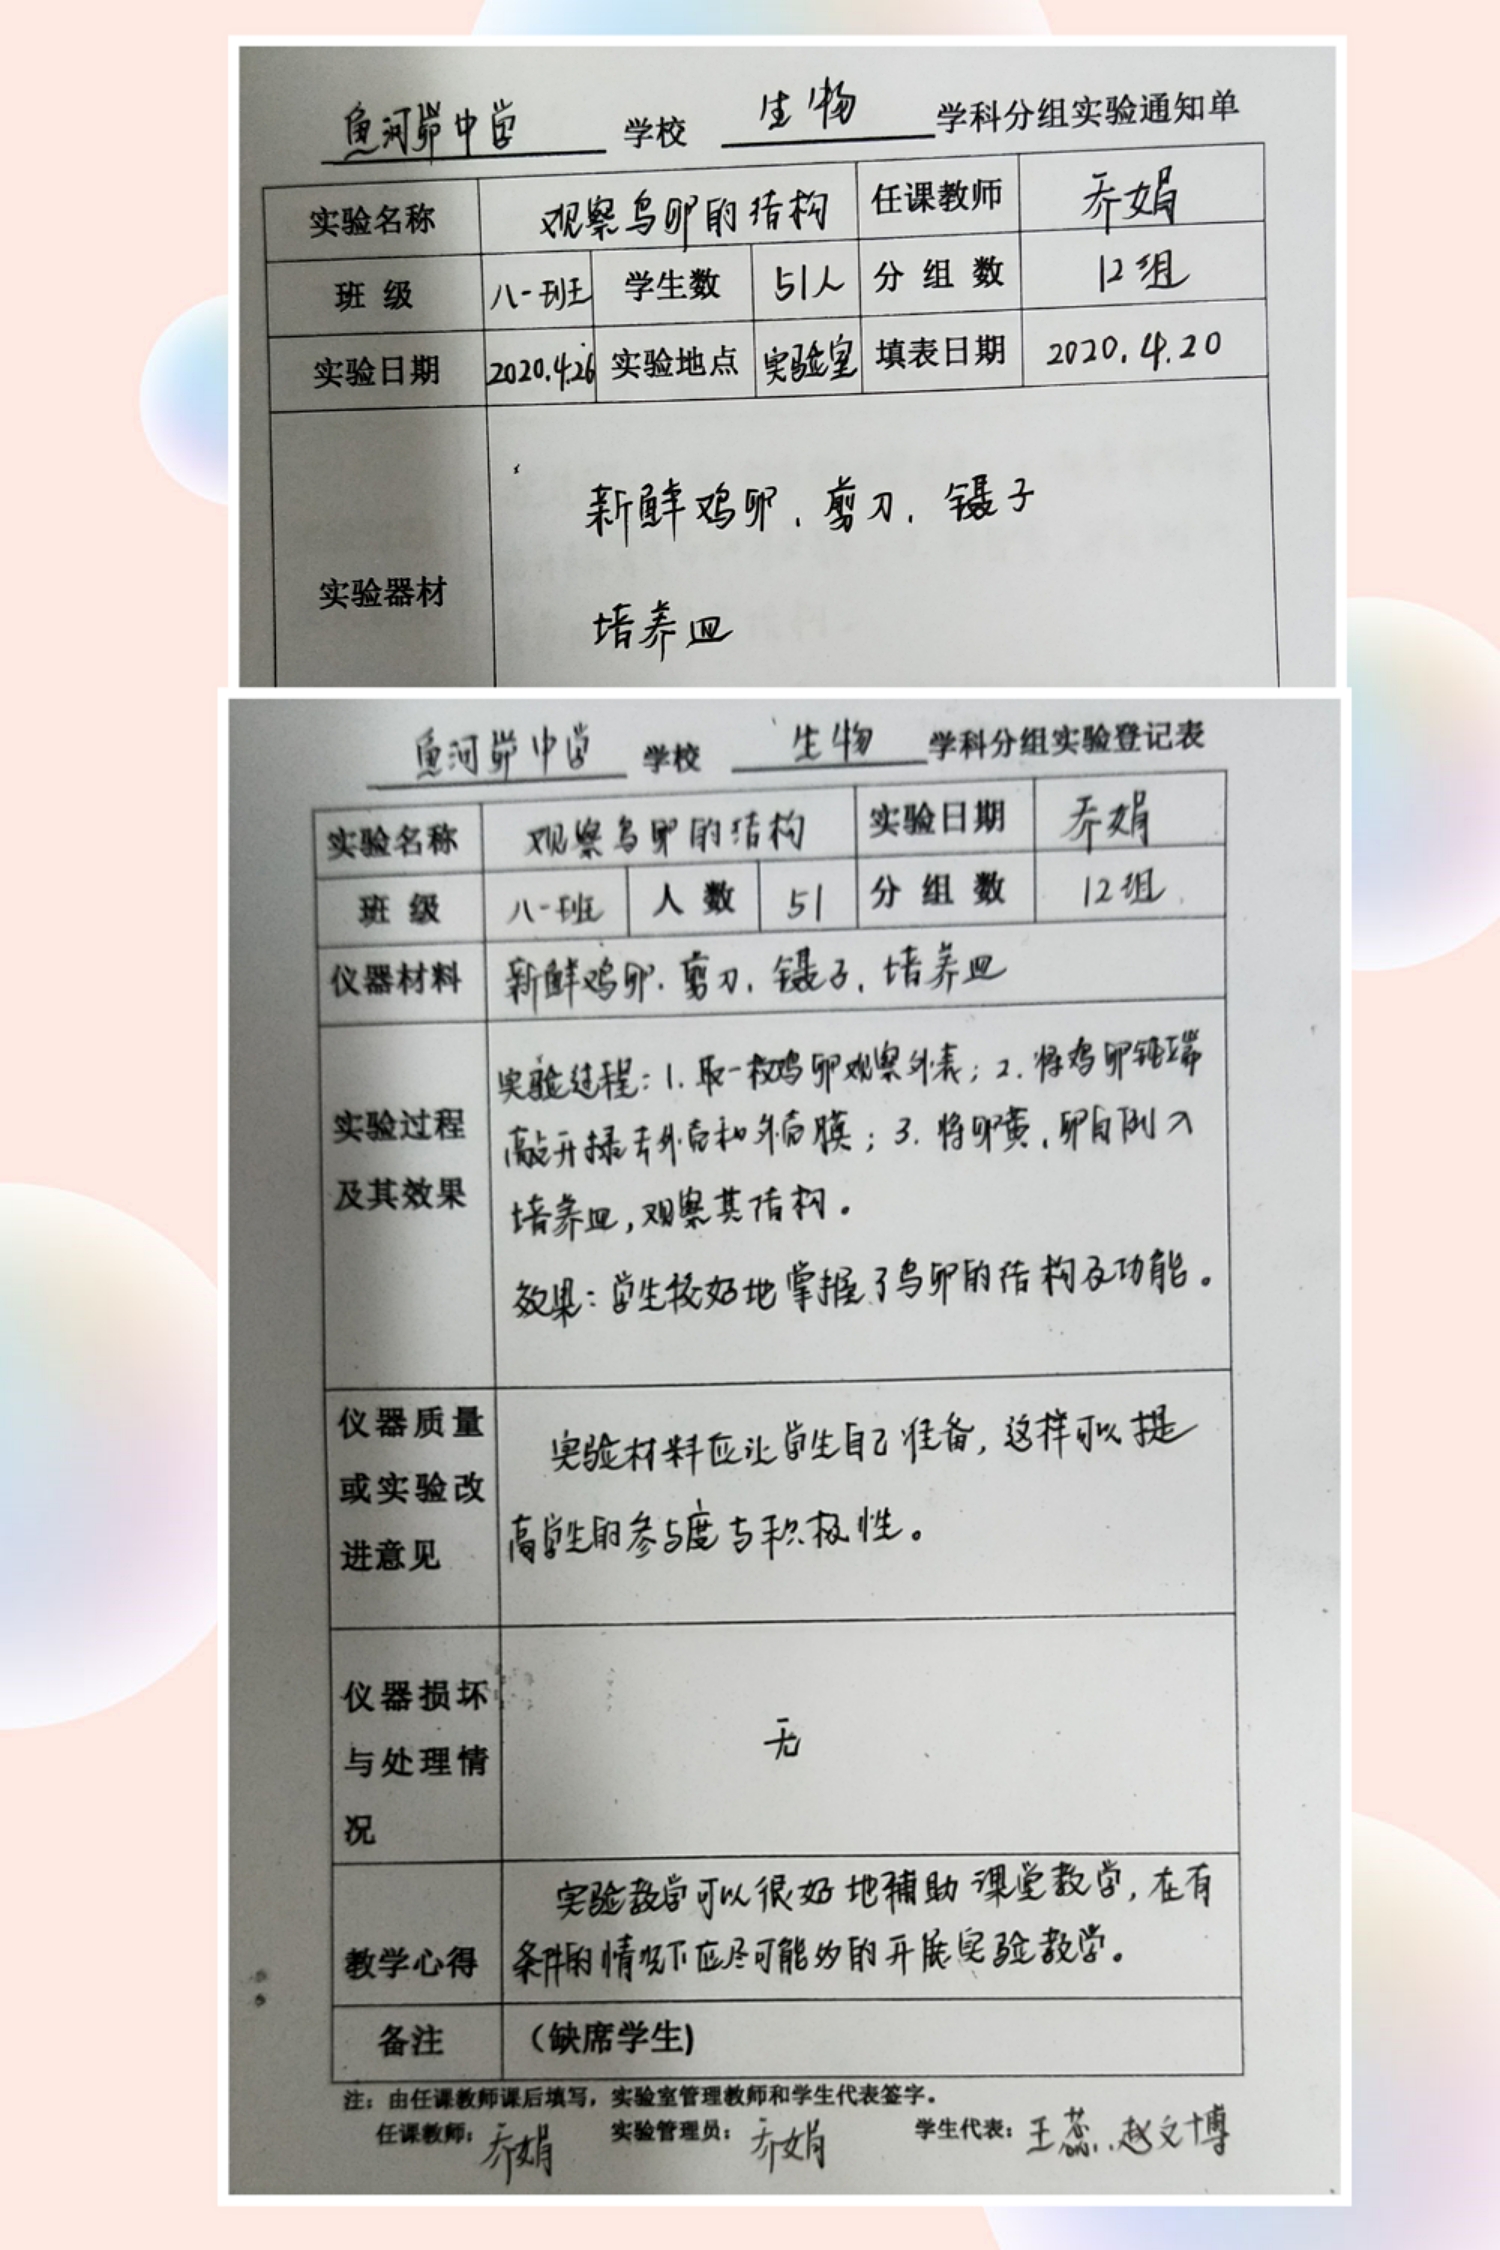 鱼河峁中学 学校 生物 学科分组实验通知单
实验名称 观察鸟卵的结构 任课教师 乔娟
班 级 八一班 学生数 51人 分 组 数 12组
实验日期 2020.4.26 实验地点 实验室 填表日期 2020.4.20
新鲜鸡卵、剪刀、镊子
实验器材
培养皿
鱼河峁中学 学校 生物 学科分组实验登记表
实验名称 观察鸟卵的结构 实验日期 乔娟
班 级 八一班 人 数 51 分 组 数 12组
仪器材料 新鲜鸡卵、剪刀、镊子、培养皿
实验过程
及其效果
实验过程：1.取一枚鸡卵观察外表；2.将鸡卵钝端
敲开除去外壳和外壳膜；3.将卵黄、卵白倒入
培养皿，观察其结构。
效果：学生较好地掌握了鸟卵的结构及功能。
仪器质量
或实验改
进意见
实验材料应让学生自己准备，这样可以提
高学生的参与度与积极性。
仪器损坏
与处理情
况
无
教学心得
实验教学可以很好地辅助课堂教学，在有
条件的情况下应尽可能多的开展实验教学。
备注 （缺席学生）
注：由任课教师课后填写，实验室管理教师和学生代表签字。
任课教师：乔娟 实验管理员：乔娟 学生代表：王蕊、赵文博